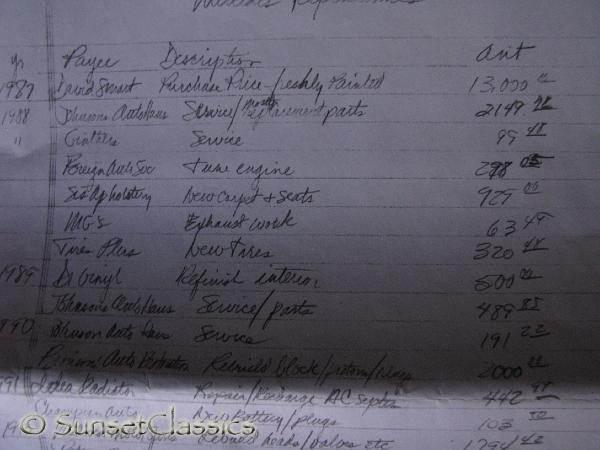 yr Payee Description Amt
1987 David Smart Purchase Price - freshly Painted 13,000 00
1988 Johnsons AutoHaus Service/ Mostly replacement parts 2149
" Service 99 48
Foreign Auto Svc tune engine 298 05
Upholstery New carpet & seats 929 00
MG's Exhaust work 63 49
Tires Plus New Tires 320 48
1989 Dr Vinyl Refinish interior 500 00
Johnsons AutoHaus Service/parts 489 85
1990 Johnson Auto Haus Service 191 22
Auto Rebuild block/pistons/rings 2000 00
1991 Radiator Repair/Recharge AC System 442
Champion Auto New Battery/plugs 103 50
Rebuild heads/valves etc 1794 42
© SunsetClassics